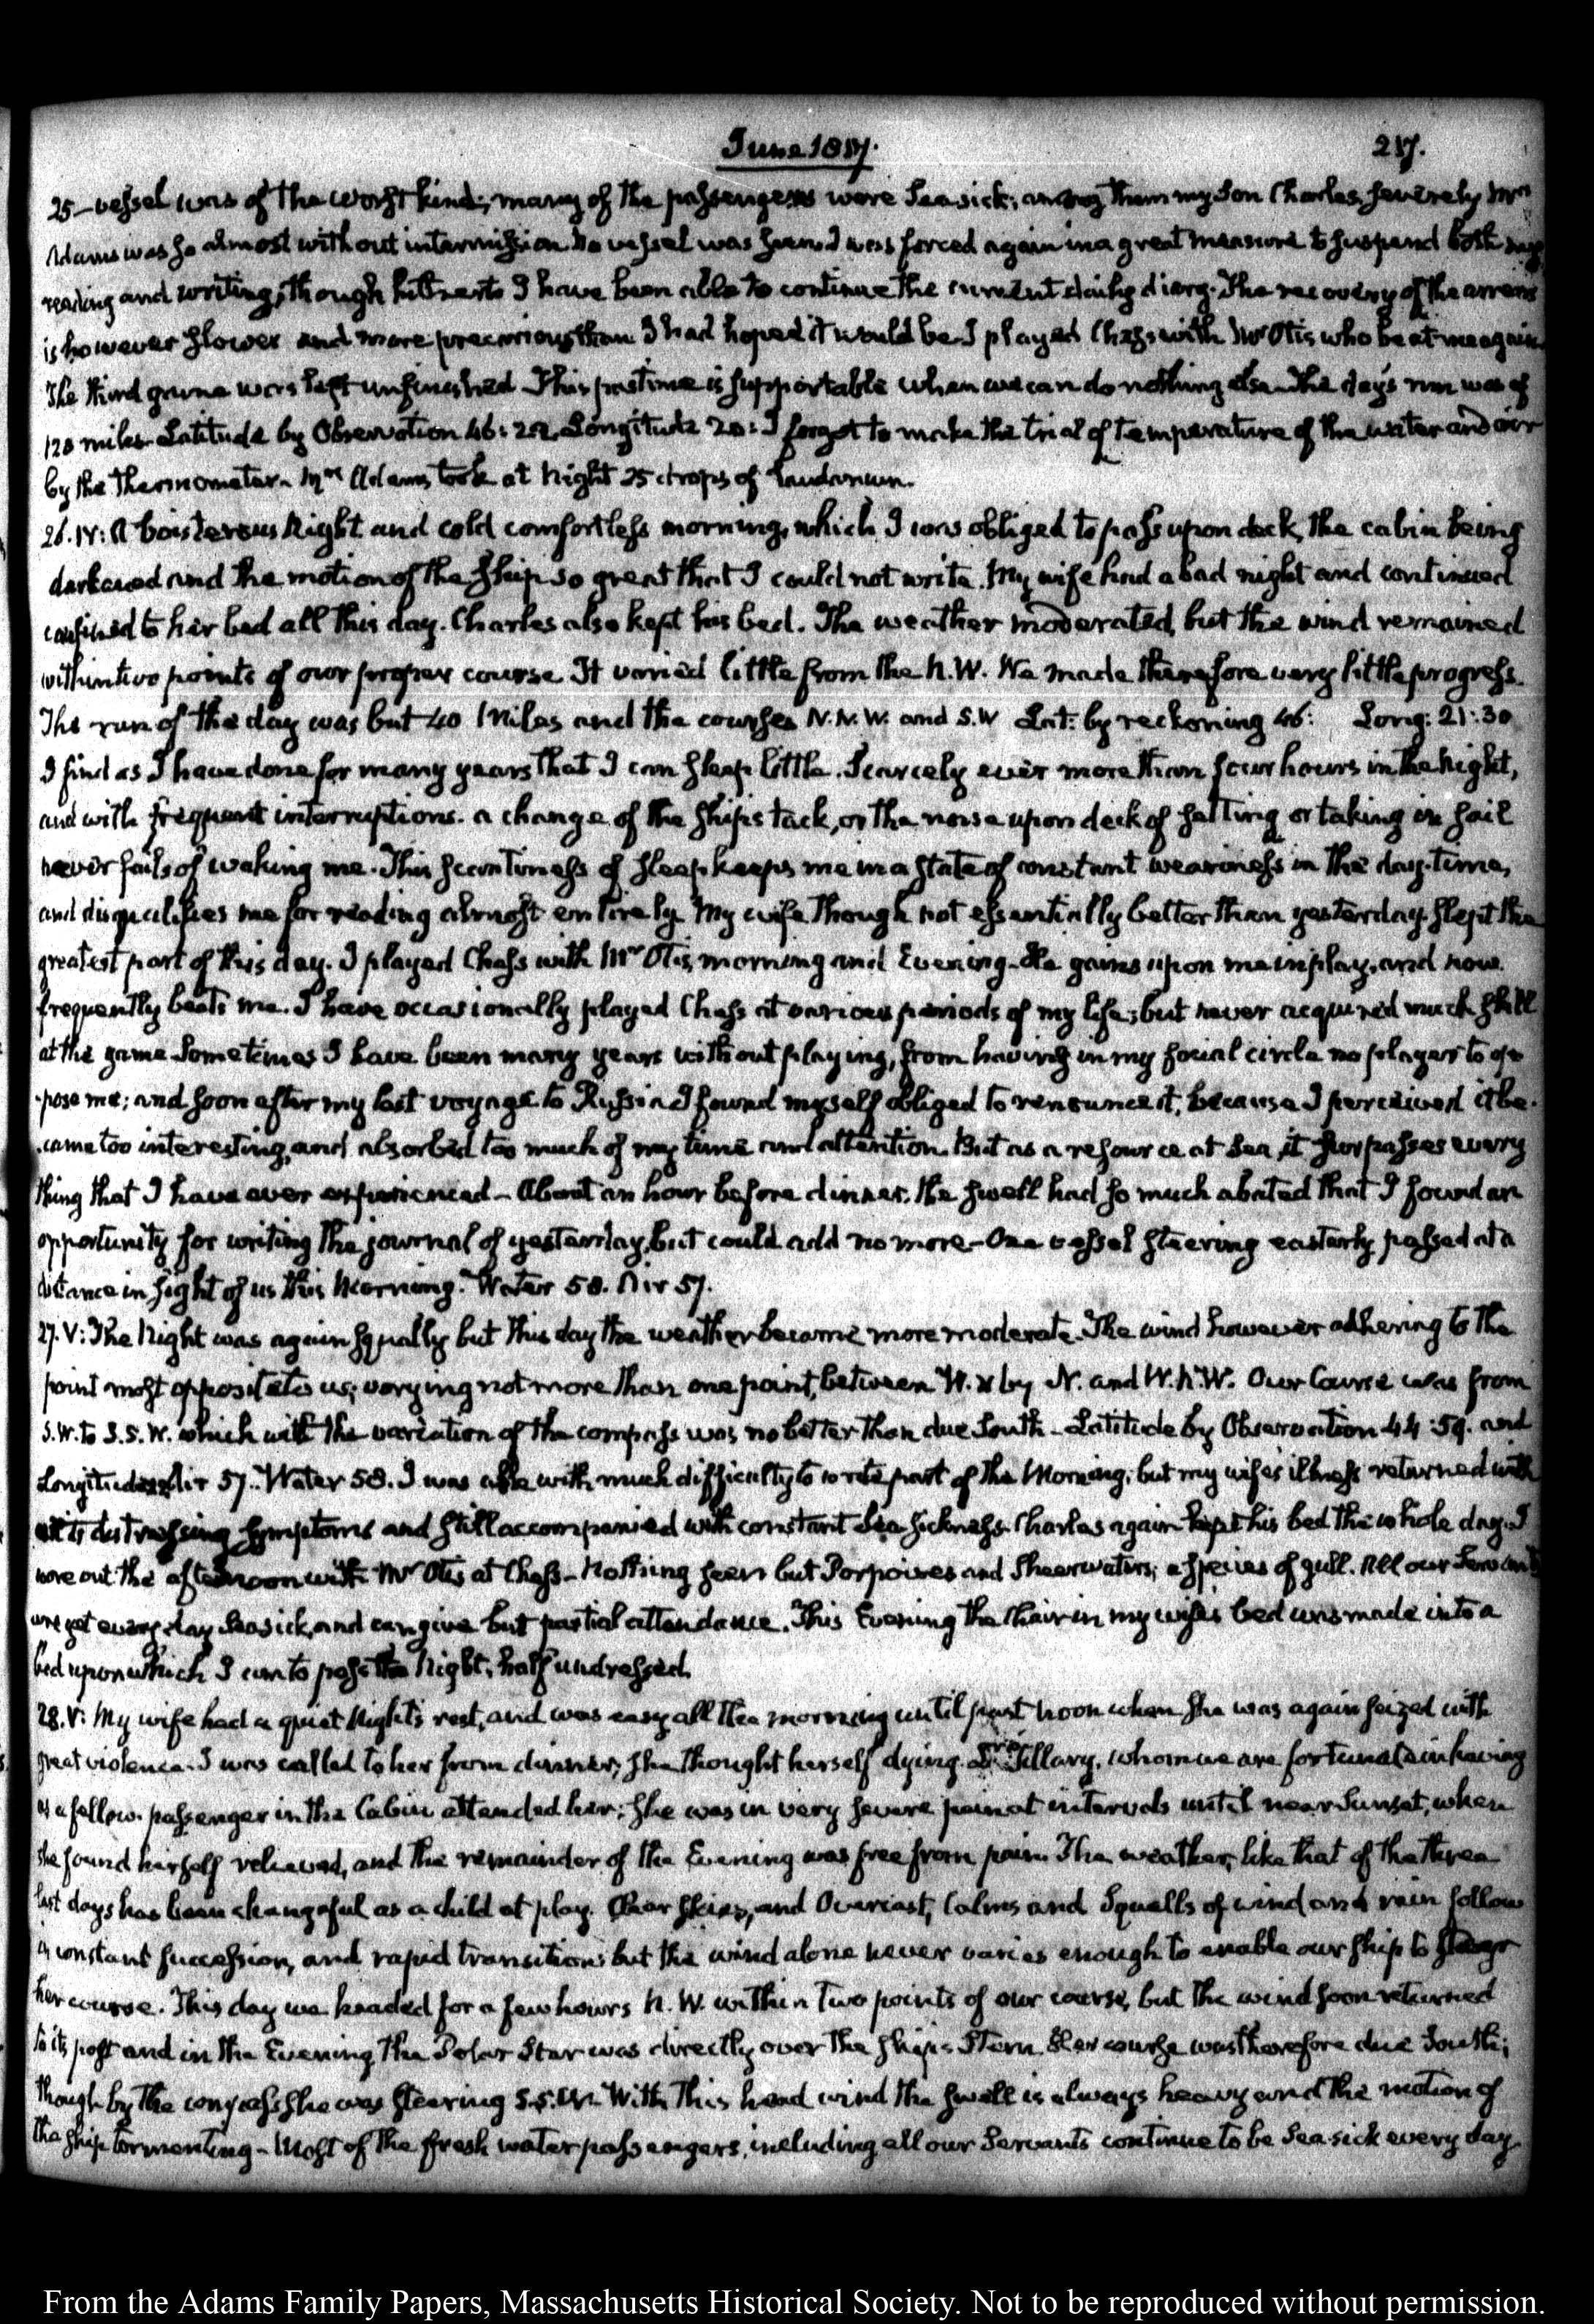 June 1817. 217.
25 – vessel was of the worst kind; many of the passengers were Sea sick; among them my Son Charles, severely Mrs.
Adams was so almost without intermission. No vessel was seen. I was forced again in a great measure to suspend both my
reading and writing, though hitherto I have been able to continue the current daily diary. The recovery of the arrears
is however slower and more precarious than I had hoped it would be. I played Chess with Mr Otis who beat me again
The third game was left unfinished. This pastime is supportable when we can do nothing else. The day's run was of
128 miles. Latitude by Observation 46: 22. Longitude 20: I forgot to make the trial of temperature of the water and air
by the Thermometer. Mrs. Adams took at Night 25 drops of Laudanum.
26. IV: A boisterous Night and cold comfortless morning, which I was obliged to pass upon deck, the cabin being
darkened and the motion of the Ship so great that I could not write. My wife had a bad night and continued
confined to her bed all this day. Charles also kept his bed. The weather moderated, but the wind remained
within two points of our proper course. It varied little from the N.W. We made therefore very little progress.
The run of the day was but 40 Miles and the courses N.N.W. and S.W Lat: by reckoning 46: Long: 21:30
I find as I have done for many years that I can sleep little. Scarcely ever more than four hours in the night,
and with frequent interruptions. a change of the Ship's tack, or the noise upon deck of setting or taking in sail
never fails of waking me. This scantiness of sleep keeps me in a state of constant weariness in the day-time,
and disqualifies me for reading almost entirely. My wife though not essentially better than yesterday slept the
greatest part of this day. I played Chess with Mr Otis, morning and Evening. He gains upon me in play, and now
frequently beats me. I have occasionally played Chess at various periods of my life; but never acquired much skill
at the game. Sometimes I have been many years without playing, from having in my social circle no player to op-
-pose me; and soon after my last voyage to Russia I found myself obliged to renounce it, because I perceived it be-
-came too interesting, and absorbed too much of my time and attention. But as a resource at Sea, it surpasses every
thing that I have ever experienced – About an hour before dinner, the swell had so much abated that I found an
opportunity for writing the journal of yesterday, but could add no more – One vessel steering easterly passed at a
distance in sight of us this Morning. Water 58. Air 57.
27. V: The Night was again squally but this day the weather became more moderate. The wind however adhering to the
point most opposite to us; varying not more than one point, between W. by N. and W.N.W. Our Course was from
S.W. to S.S.W. which with the variation of the compass was no better than due South – Latitude by Observation 44:59. and
Longitude Air 57. Water 58. I was able with much difficulty to write part of the Morning; but my wife's illness returned with
all its distressing symptoms and still accompanied with constant Sea-sickness. Charles again kept his bed the whole day. I
wore out the afternoon with Mr Otis at Chess – Nothing seen but Porpoises and Sheerwaters; a species of gull. All our Servants
are yet every day Sea sick, and can give but partial attendance. This Evening the Chair in my wife's bed was made into a
bed upon which I am to pass the Night, half undressed.
28. V: My wife had a quiet Night's rest, and was easy all the morning until past noon when she was again seized with
great violence. I was called to her from dinner; she thought herself dying. Dr Tillary, whom we are fortunate in having
as a fellow-passenger in the Cabin attended her; she was in very severe pain at intervals until near Sunset, when
she found herself relieved, and the remainder of the Evening was free from pain. The weather, like that of the three
last days has been changeful as a child at play. Clear Skies, and Overcast, Calms and Squalls of wind and rain follow
in constant succession, and rapid transition; but the wind alone never varies enough to enable our ship to steer
her course. This day we headed for a few hours N.W. within two points of our course, but the wind soon returned
to its post and in the Evening the Polar Star was directly over the Ship's Stern. Her course was therefore due South;
though by the compass she was steering S.S.W. With this head wind the swell is always heavy and the motion of
the ship tormenting – Most of the fresh water passengers, including all our Servants continue to be Sea sick every day
From the Adams Family Papers, Massachusetts Historical Society. Not to be reproduced without permission.